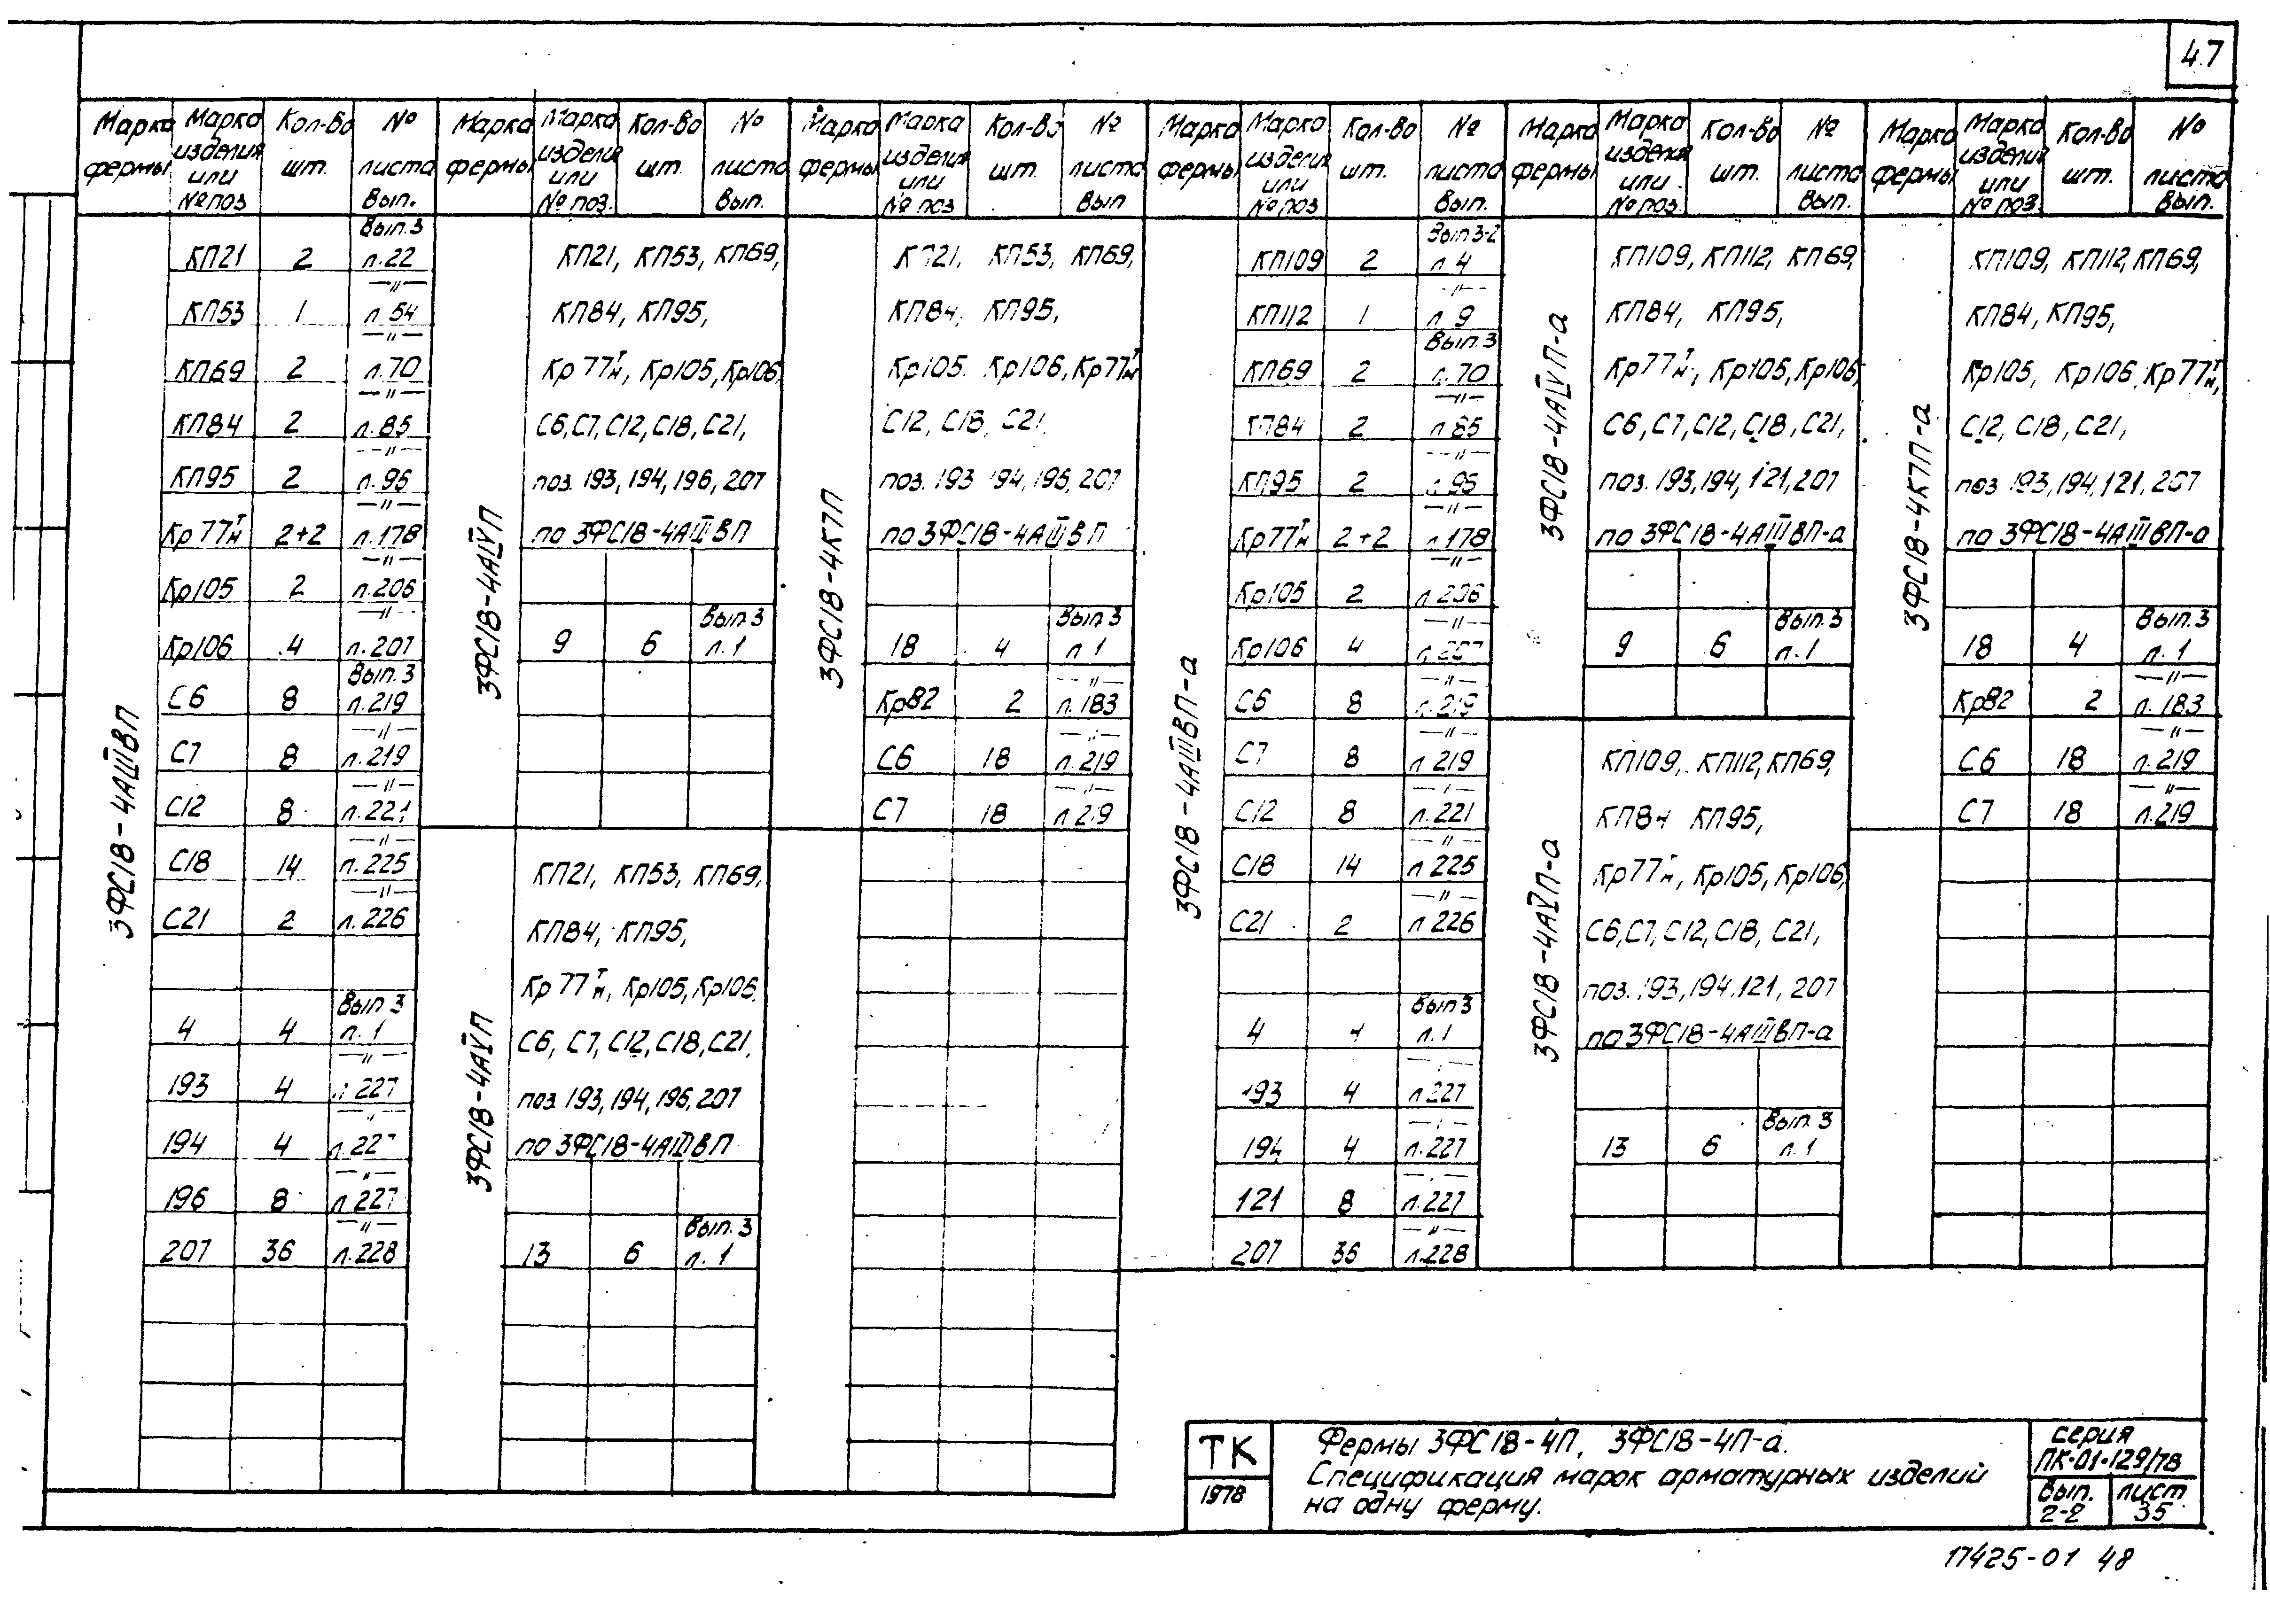 47
Марка фермы | Марка изделия или № поз | Кол-во шт. | № листа Вып. | Марка фермы | Марка изделия или № поз. | Кол-во шт. | № листа Вып. | Марка фермы | Марка изделия или № поз | Кол-во шт. | № листа Вып | Марка фермы | Марка изделия или № поз | Кол-во шт. | № листа Вып. | Марка фермы | Марка изделия или № поз. | Кол-во шт. | № листа Вып. | Марка фермы | Марка изделия или № поз. | Кол-во шт. | № листа Вып.
3ФС18-4АIIIВП
КП21 2 Вып.3 л.22
КП53 1 —"— л.54
КП69 2 —"— л.70
КП84 2 —"— л.85
КП95 2 —"— л.96
Кр77т/н 2+2 —"— л.178
Кр105 2 —"— л.206
Кр106 4 —"— л.207
С6 8 Вып.3 л.219
С7 8 —"— л.219
С12 8 —"— л.221
С18 14 —"— л.225
С21 2 —"— л.226
4 4 Вып 3 л.1
193 4 —"— л.227
194 4 —"— л.227
196 8 —"— л.227
207 36 —"— л.228
3ФС18-4АIVП
КП21, КП53, КП69,
КП84, КП95,
Кр77т/н, Кр105, Кр106,
С6, С7, С12, С18, С21,
поз. 193, 194, 196, 207
по 3ФС18-4АIIIВП
9 6 Вып.3 л.1
3ФС18-4АVП
КП21, КП53, КП69,
КП84, КП95,
Кр77т/н, Кр105, Кр106
С6, С7, С12, С18, С21,
поз. 193, 194, 196, 207
по 3ФС18-4АIIIВП
13 6 Вып.3 л.1
3ФС18-4К7П
КП21, КП53, КП69,
КП84, КП95,
Кр105. Кр106, Кр77т/н
С12, С18, С21,
поз. 193 194, 196, 207
по 3ФС18-4АIIIВП
18 4 Вып.3 л 1
Кр82 2 —"— л.183
С6 18 —"— л.219
С7 18 —"— л 219
3ФС18-4АIIIВП-а
КП109 2 Вып 3-2 л 4
КП112 1 —"— л 9
КП69 2 Вып.3 л.70
КП84 2 —"— л.85
КП95 2 —"— л.96
Кр77т/н 2+2 —"— л.178
Кр105 2 —"— л.206
Кр106 4 —"— л.207
С6 8 —"— л.219
С7 8 —"— л 219
С12 8 —"— л.221
С18 14 —"— л 225
С21 2 —"— л 226
4 4 Вып 3 л.1
193 4 —"— л.227
194 4 —"— л.227
121 8 —"— л.227
207 36 —"— л.228
3ФС18-4АIVП-а
КП109, КП112, КП69,
КП84, КП95,
Кр77т/н, Кр105, Кр106,
С6, С7, С12, С18, С21,
поз. 193, 194, 121, 207
по 3ФС18-4АIIIВП-а
9 6 Вып.3 л.1
3ФС18-4АVП-а
КП109, КП112, КП69,
КП84 КП95,
Кр77т/н, Кр105, Кр106,
С6, С7, С12, С18, С21,
поз. 193, 194, 121, 207
по 3ФС18-4АIIIВП-а
13 6 Вып 3 л.1
3ФС18-4К7П-а
КП109, КП112, КП69,
КП84, КП95,
Кр105, Кр106, Кр77т/н,
С12, С18, С21,
поз 193, 194, 121, 207
по 3ФС18-4АIIIВП-а
18 4 Вып.3 л.1
Кр82 2 —"— л.183
С6 18 —"— л.219
С7 18 —"— л.219
ТК
1978
Фермы 3ФС18-4П, 3ФС18-4П-а.
Спецификация марок арматурных изделий
на одну ферму.
серия
ПК-01-129/78
Вып. 2-2
лист 35
17425-01 48